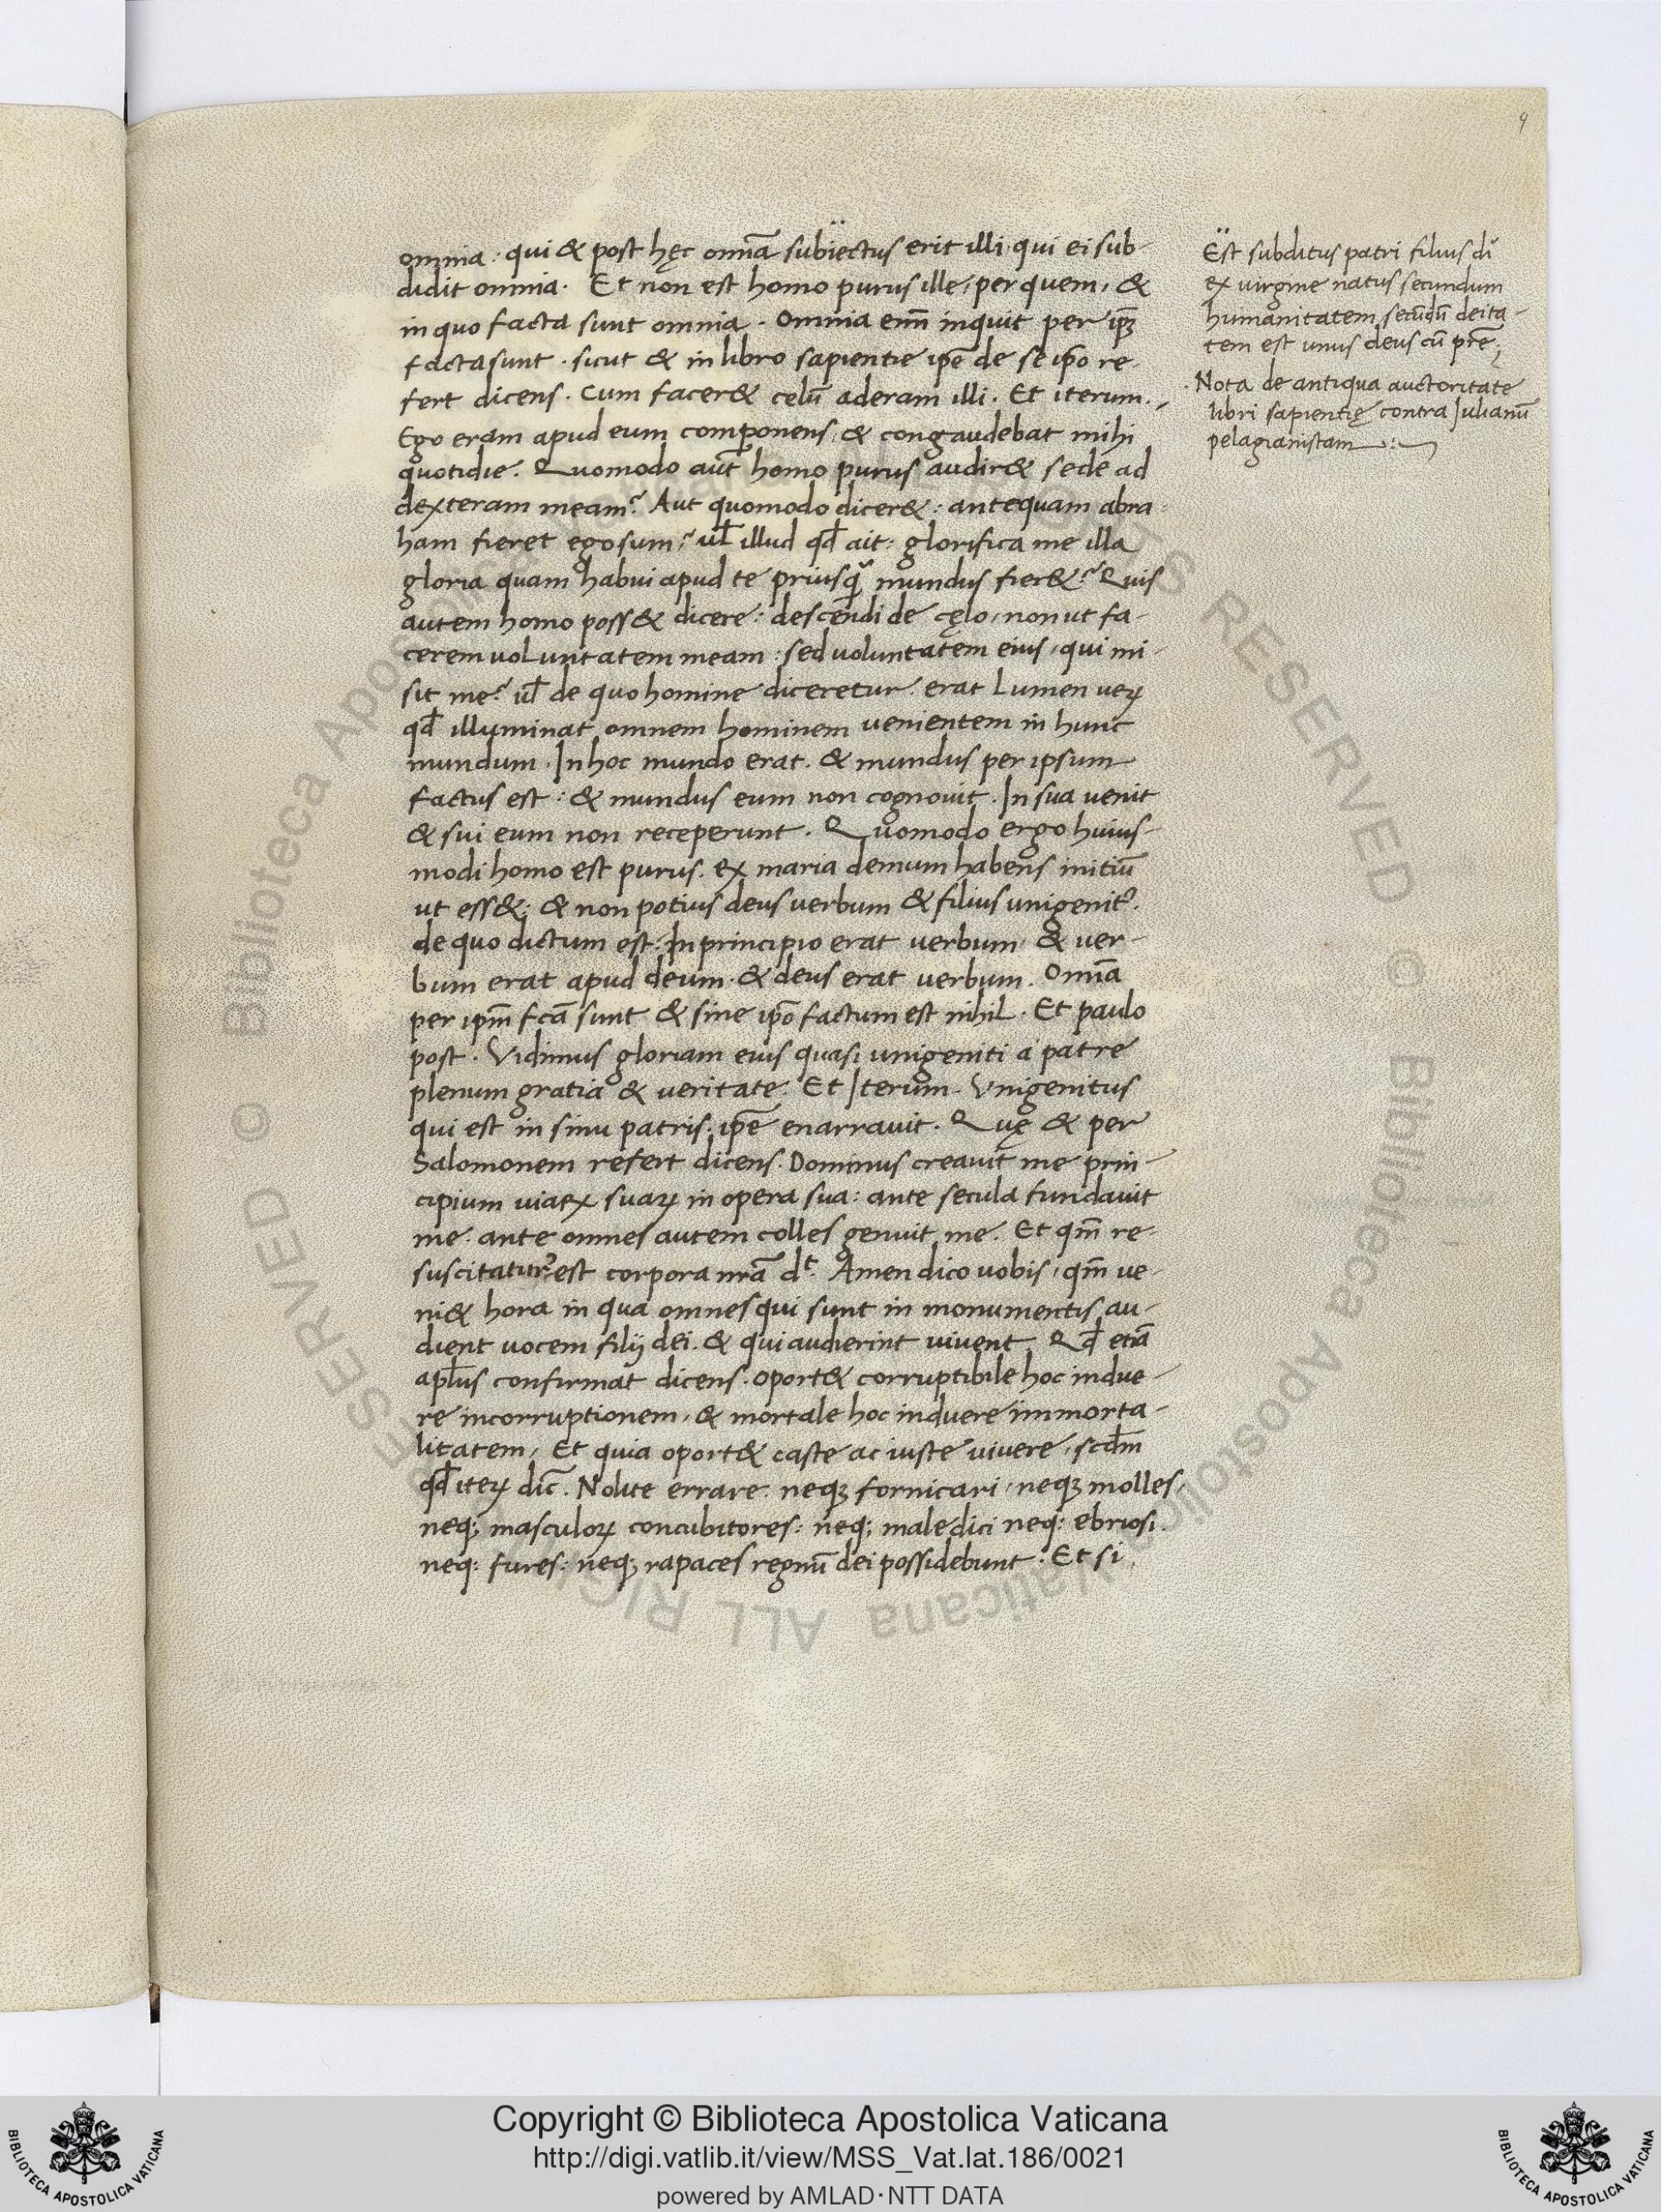 9
omnia : qui & post hęc om̄ia subiectus erit illi qui ei sub-
didit omnia. Et non est homo purus ille, per quem, &
in quo facta sunt omnia. Omnia em̄ inquit per ip̄ꝫ
facta sunt. sicut & in libro sapientie ip̄e de se ip̄o re-
fert dicens. Cum facer& celū aderam illi. Et iterum.
Ego eram apud eum componens, & congaudebat mihi
quotidie. Quomodo aūt homo purus audir& sede ad
dexteram meam? Aut quomodo dicer& : antequam abra-
ham fieret ego sum? ul̄ illud qd̄ ait: glorifica me illa
gloria quam habui apud te priusq̄ mundus fier&? Quis
autem homo poss& dicere: descendi de cęlo, non ut fa-
cerem voluntatem meam : sed voluntatem eius, qui mi-
sit me? ul̄ de quo homine diceretur. erat Lumen veꝝ
qd̄ illuminat omnem hominem venientem in hunc
mundum. In hoc mundo erat. & mundus per ipsum
factus est : & mundus eum non cognovit. In sua venit
& sui eum non receperunt. Quomodo ergo huius-
modi homo est purus. ex maria demum habens initiū
ut ess& : & non potius deus verbum & filius unigenit⁹.
de quo dictum est: In principio erat verbum, & ver-
bum erat apud deum. & deus erat verbum. Om̄ia
per ip̄m fc̄a sunt & sine ip̄o factum est nihil. Et paulo
post. Vidimus gloriam eius quasi unigeniti a patre
plenum gratia & veritate. Et Iterum. Unigenitus
qui est in sinu patris. ip̄e enarravit. Quę & per
Salomonem refert dicens. Dominus creavit me prin-
cipium viaꝝ suaꝝ in opera sua: ante secula fundavit
me. ante omnes autem colles genuit me. Et qm̄ re-
suscitatur⁹ est corpora nr̄a dt. Amen dico vobis, qm̄ ve-
ni& hora in qua omnes qui sunt in monumentis au-
dient vocem filij dei. & qui audierint vivent. Qd̄ etiā
apl̄us confirmat dicens. oport& corruptibile hoc indue-
re incorruptionem, & mortale hoc induere immorta-
litatem, Et quia oport& caste ac iuste vivere, scd̄m
qd̄ iteꝝ dic̄. Nolite errare. neqꝫ fornicari, neqꝫ molles,
neqꝫ masculoꝝ concubitores: neqꝫ maledici neqꝫ ebriosi.
neqꝫ fures: neqꝫ rapaces regnū dei possidebunt. Et si
Est subditus patri filius di
ex virgine natus secundum
humanitatem, secūdū deita-
tem est unus deus cū pr̄e;
Nota de antiqua auctoritate
libri sapientię contra Julianū
pelagianistam
Copyright © Biblioteca Apostolica Vaticana
http://digi.vatlib.it/view/MSS_Vat.lat.186/0021
powered by AMLAD·NTT DATA
BIBLIOTECA APOSTOLICA VATICANA
BIBLIOTECA APOSTOLICA VATICANA